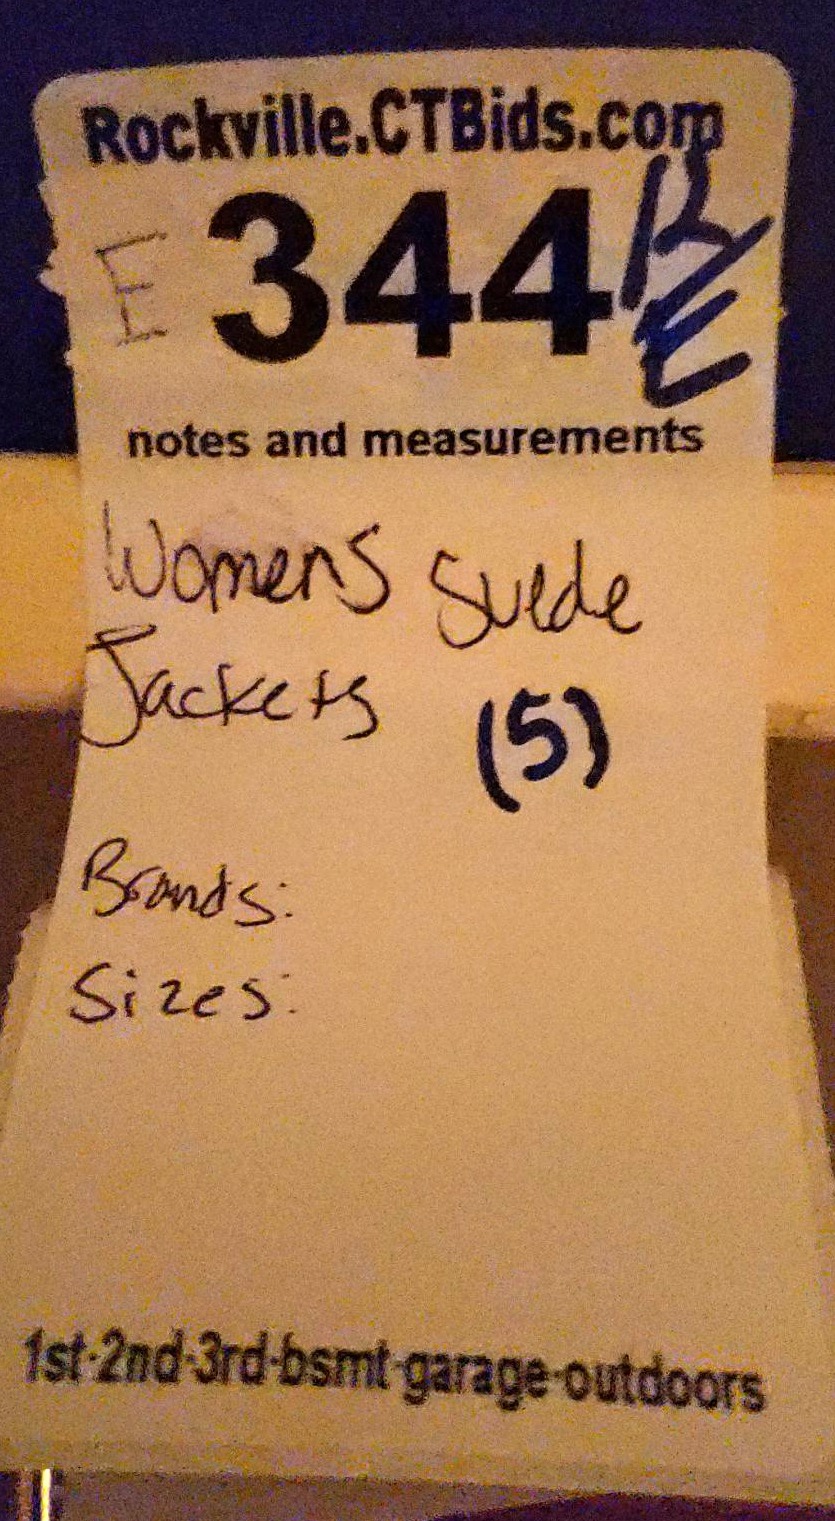 Rockville.CTBids.com
E 344 B
E
notes and measurements
Womens Suede
Jackets (5)
Brands:
Sizes:
1st-2nd-3rd-bsmt-garage-outdoors